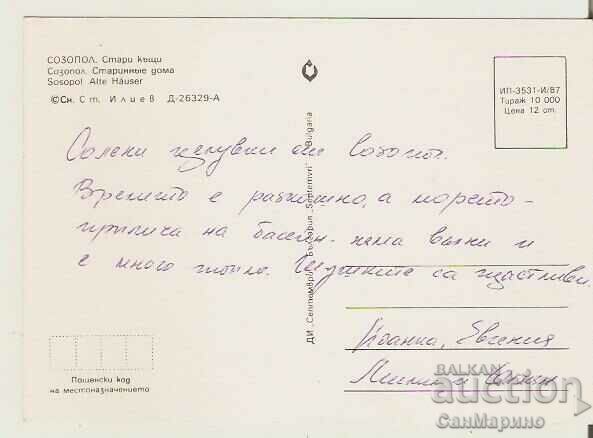 СОЗОПОЛ. Стари къщи
Созопол. Старинные дома
Sosopol Alte Häuser
©Сн. Ст. Илиев Д-26329-А
ИП-3531-И/87
Тираж 10 000
Цена 12 ст.
ДИ „Септември“ България „Septemvri“ Bulgaria
Солени целувки от Созопол.
Времето е разкошно, а морето -
прилича на басейн. няма вълни и
е много топло. са щастливи.
Йоанна, Евгения
и
Пощенски код
на местоназначението
BALKAN
auction
СанМарино